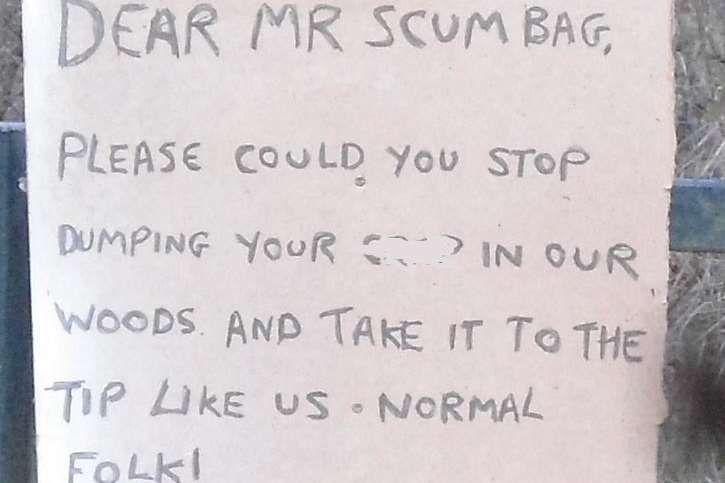 DEAR MR SCUMBAG,
PLEASE COULD YOU STOP
DUMPING YOUR IN OUR
WOODS. AND TAKE IT TO THE
TIP LIKE US. NORMAL
FOLK!